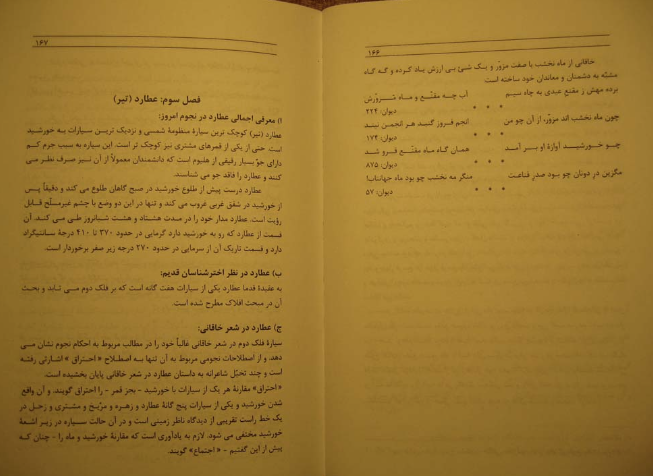 ۱۶۶
خاقانی از ماه نخشب با صفت مزوّر و یک شیٔ بی ارزش یاد کرده و گه گاه
مشبّه به دشمنان و معاندان خود ساخته است
برده مهش ز مقنع عیدی به چاه سیم آب چه مقنّع و ماه مزوّرش
* * * دیوان: ۲۲۴
چون ماه نخشب اند مزوّر، از آن چو من انجم فروز گنبد هر انجمن نیند
* * * دیوان: ۱۷۴
چو خورشید آوازهٔ او بر آمد همان گاه ماه مقنّع فرو شد
* * * دیوان: ۸۷۵
مگزین در دونان چو بود صدر قناعت منگر مه نخشب چو بود ماه جهانتاب!
* * * دیوان: ۵۷
۱۶۷
فصل سوم: عطارد (تیر)
ا) معرفی اجمالی عطارد در نجوم امروز:
عطارد (تیر) کوچک ترین سیارهٔ منظومهٔ شمسی و نزدیک ترین سیارات به خورشید
است. حتی از یکی از قمرهای مشتری نیز کوچک تر است. این سیاره به سبب جرم کم
دارای جوّ بسیار رقیقی از هلیوم است که دانشمندان معمولاً از آن نیز صرف نظر می
کنند و عطارد را فاقد جو می شناسند.
عطارد درست پیش از طلوع خورشید در صبح گاهان طلوع می کند و دقیقاً پس
از خورشید در شفق غربی غروب می کند و تنها در این دو وضع با چشم غیرمسلّح قابل
رؤیت است. عطارد مدار خود را در مدت هشتاد و هشت شبانروز طی می کند. آن
قسمت از عطارد که رو به خورشید دارد گرمایی در حدود ۳۷۰ تا ۴۱۰ درجهٔ سانتیگراد
دارد و قسمت تاریک آن از سرمایی در حدود ۲۷۰ درجه زیر صفر برخوردار است.
ب) عطارد در نظر اخترشناسان قدیم:
به عقیدهٔ قدما عطارد یکی از سیارات هفت گانه است که بر فلک دوم می تابد و بحث
آن در مبحث افلاک مطرح شده است.
ج) عطارد در شعر خاقانی:
سیارهٔ فلک دوم در شعر خاقانی غالباً خود را در مطالب مربوط به احکام نجوم نشان می
دهد، و از اصطلاحات نجومی مربوط به آن تنها به اصطلاح «احتراق» اشارتی رفته
است و چند تخیّل شاعرانه به داستان عطارد در شعر خاقانی پایان بخشیده است.
«احتراق» مقارنهٔ هر یک از سیارات با خورشید - بجز قمر - را احتراق گویند. و آن واقع
شدن خورشید و یکی از سیارات پنج گانهٔ عطارد و زهره و مرّیخ و مشتری و زحل در
یک خط راست تقریبی از دیدگاه ناظر زمینی است و در آن حالت سیاره در زیر اشعهٔ
خورشید مختفی می شود. لازم به یادآوری است که مقارنهٔ خورشید و ماه را - چنان که
پیش از این گفتیم - «اجتماع» گویند.